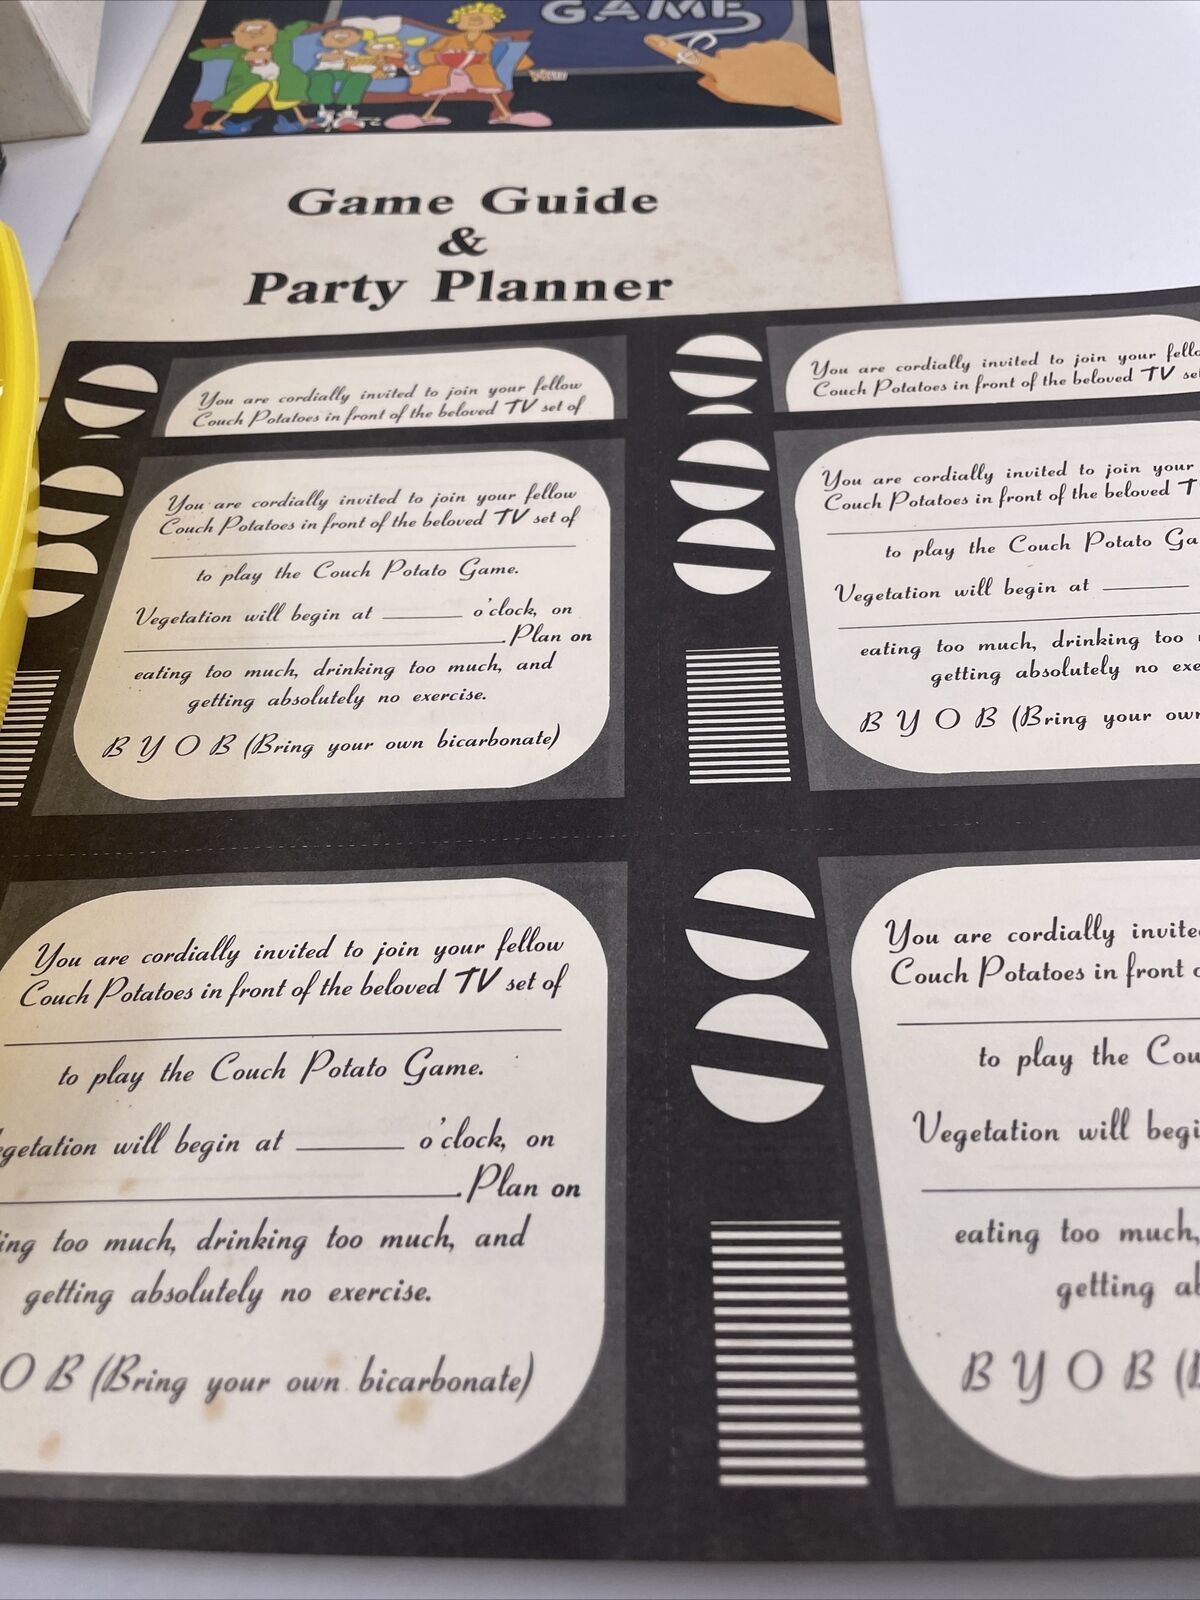 GAME
Game Guide
&
Party Planner
You are cordially invited to join your fellow
Couch Potatoes in front of the beloved TV set of
You are cordially invited to join your fello
Couch Potatoes in front of the beloved TV set
You are cordially invited to join your fellow
Couch Potatoes in front of the beloved TV set of
to play the Couch Potato Game.
Vegetation will begin at ______ o'clock, on
______. Plan on
eating too much, drinking too much, and
getting absolutely no exercise.
B Y O B (Bring your own bicarbonate)
You are cordially invited to join your
Couch Potatoes in front of the beloved T
to play the Couch Potato Ga
Vegetation will begin at ______
eating too much, drinking too
getting absolutely no exe
B Y O B (Bring your own
You are cordially invited to join your fellow
Couch Potatoes in front of the beloved TV set of
to play the Couch Potato Game.
getation will begin at ______ o'clock, on
______. Plan on
ing too much, drinking too much, and
getting absolutely no exercise.
O B (Bring your own bicarbonate)
You are cordially invite
Couch Potatoes in front
to play the Cou
Vegetation will begi
eating too much,
getting ab
B Y O B (B